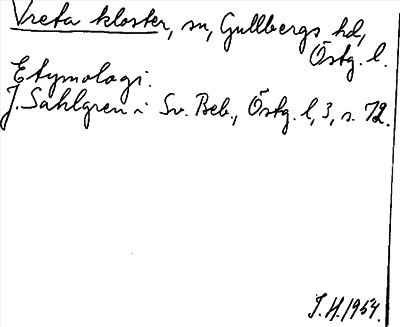 Vreta kloster, sn, Gullbergs hd,
Östg. l.
Etymologi.
J. Sahlgren i Sv. Beb., Östg. l, 3, s. 72.
J. H. 1954.